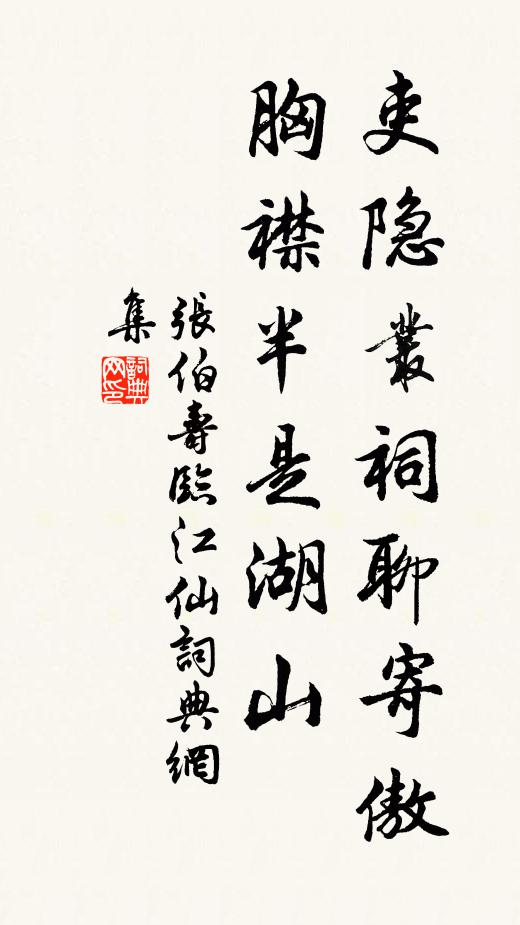 吏隐叢祠聊寄傲
胸襟半是湖山
張伯壽臨江仙詞典網
集
詞典网印